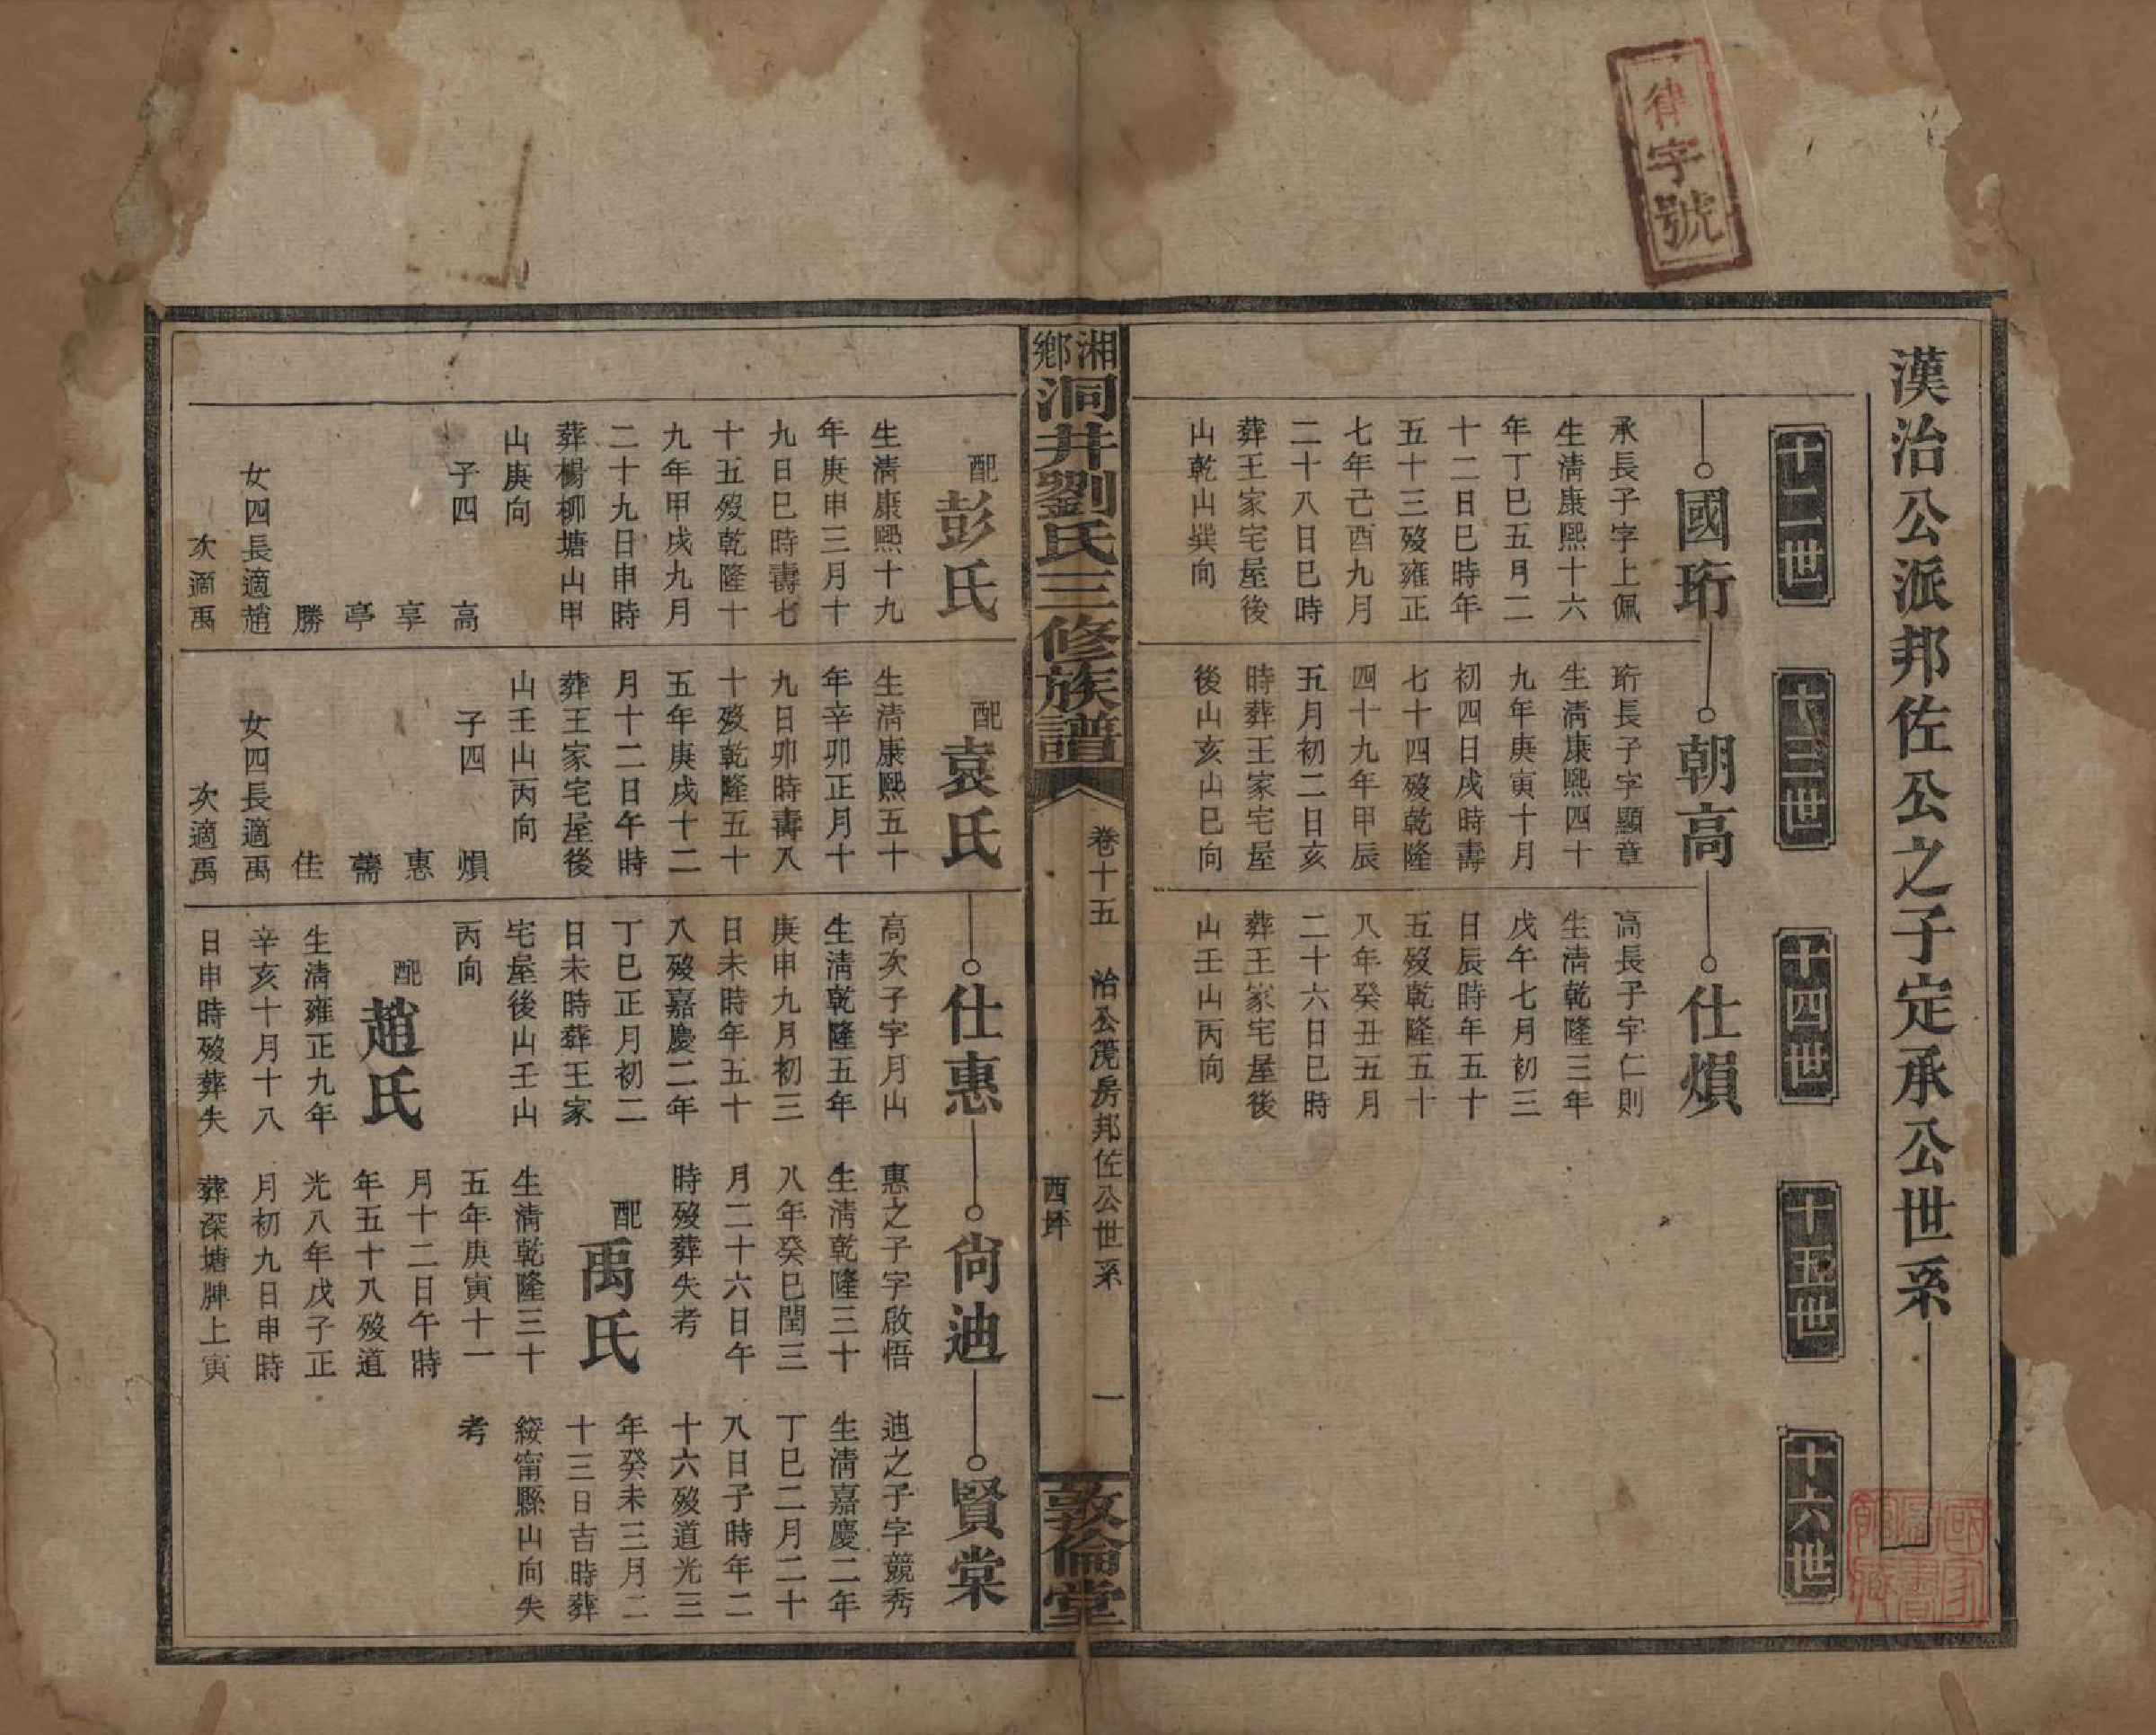 律字號
漢治公派邦佐公之子定承公世系
十二世
十三世
十四世
十五世
十六世
國珩
承長子字上佩
生清康熙十六
年丁巳五月二
十二日巳時年
五十三歿雍正
七年己酉九月
二十八日巳時
葬王家宅屋後
山乾山巽向
朝高
珩長子字顯章
生清康熙四十
九年庚寅十月
初四日戌時壽
七十四歿乾隆
四十九年甲辰
五月初二日亥
時葬王家宅屋
後山亥山巳向
仕熉
高長子字仁則
生清乾隆三年
戊午七月初三
日辰時年五十
五歿乾隆五十
八年癸丑五月
二十六日巳時
葬王家宅屋後
山壬山丙向
湘鄉洞井劉氏三修族譜
卷十五
治公箢房邦佐公世系
西坪
一
敦倫堂
配彭氏
生清康熙十九
年庚申三月十
九日巳時壽七
十五歿乾隆十
九年甲戌九月
二十九日申時
葬楊柳塘山甲
山庚向
子四 高
享
亭
勝
女四長適趙
次適禹
配袁氏
生清康熙五十
年辛卯正月十
九日卯時壽八
十歿乾隆五十
五年庚戌十二
月十二日午時
葬王家宅屋後
山壬山丙向
子四 熉
惠
薷
佳
女四長適禹
次適禹
仕惠
高次子字月山
生清乾隆五年
庚申九月初三
日未時年五十
八歿嘉慶二年
丁巳正月初二
日未時葬王家
宅屋後山壬山
丙向
配趙氏
生清雍正九年
辛亥十月十八
日申時歿葬失
尙迪
惠之子字啟悟
生清乾隆三十
八年癸巳閏三
月二十六日午
時歿葬失考
配禹氏
生清乾隆三十
五年庚寅十一
月十二日午時
年五十八歿道
光八年戊子正
月初九日申時
葬深塘牌上寅
賢棠
迪之子字競秀
生清嘉慶二年
丁巳二月二十
八日子時年二
十六歿道光三
年癸未三月二
十三日吉時葬
綏甯縣山向失
考